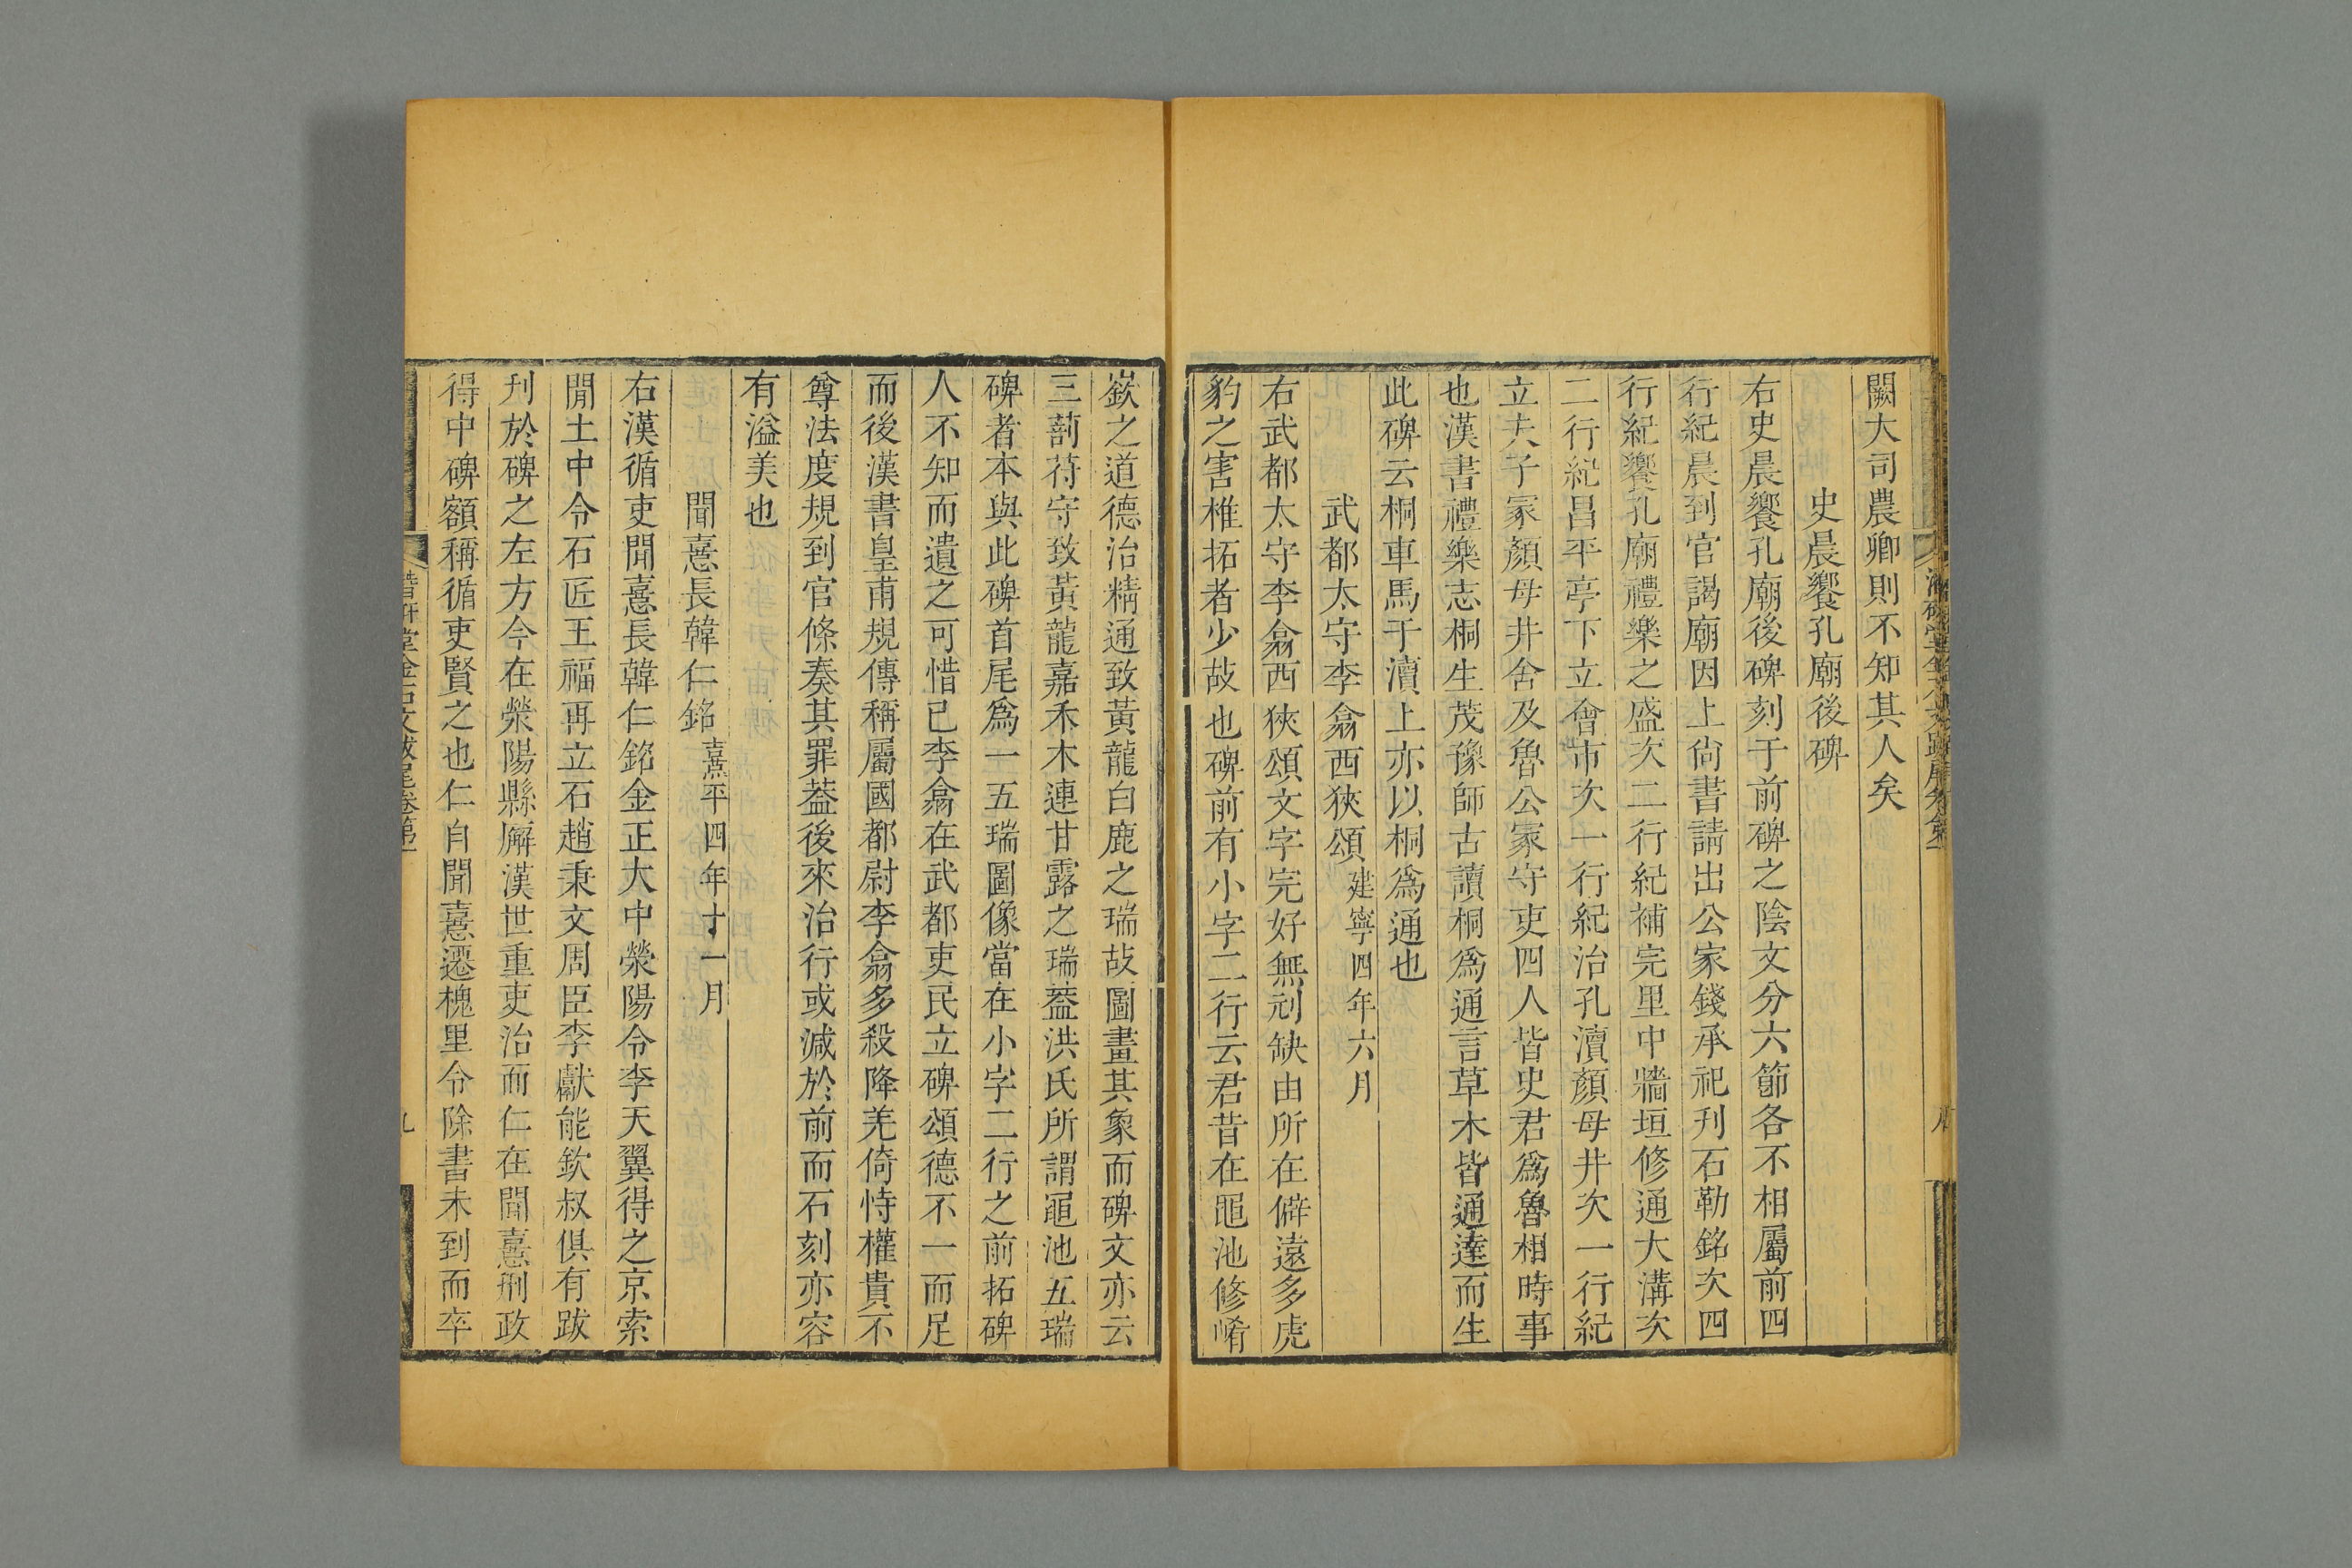 闕大司農卿則不知其人矣
史晨饗孔廟後碑
右史晨饗孔廟後碑刻于前碑之陰文分六節各不相屬前四
行紀晨到官謁廟因上尚書請出公家錢承祀刋石勒銘次四
行紀饗孔廟禮樂之盛次二行紀補完里中牆垣修通大溝次
二行紀昌平亭下立會市次一行紀治孔瀆顏母井次一行紀
立夫子冢顏母井舍及魯公冢守吏四人皆史君爲魯相時事
也漢書禮樂志桐生茂豫師古讀桐爲通言草木皆通達而生
此碑云桐車馬于瀆上亦以桐爲通也
武都太守李翕西狹頌建寧四年六月
右武都太守李翕西狹頌文字完好無刓缺由所在僻遠多虎
豹之害椎拓者少故也碑前有小字二行云君昔在黽池修崤
嶔之道德治精通致黃龍白鹿之瑞故圖畫其象而碑文亦云
三剖苻守致黃龍嘉禾木連甘露之瑞葢洪氏所謂黽池五瑞
碑者本與此碑首尾爲一五瑞圖像當在小字二行之前拓碑
人不知而遺之可惜已李翕在武都吏民立碑頌德不一而足
而後漢書皇甫規傳稱屬國都尉李翕多殺降羌倚恃權貴不
尊法度規到官條奏其罪葢後來治行或減於前而石刻亦容
有溢美也
聞憙長韓仁銘熹平四年十一月
右漢循吏聞憙長韓仁銘金正大中滎陽令李天翼得之京索
閒土中令石匠王福再立石趙秉文周臣李獻能欽叔俱有跋
刋於碑之左方今在滎陽縣廨漢世重吏治而仁在聞憙刑政
得中碑額稱循吏賢之也仁自聞憙遷槐里令除書未到而卒
潛研堂金石文跋尾卷第一
九